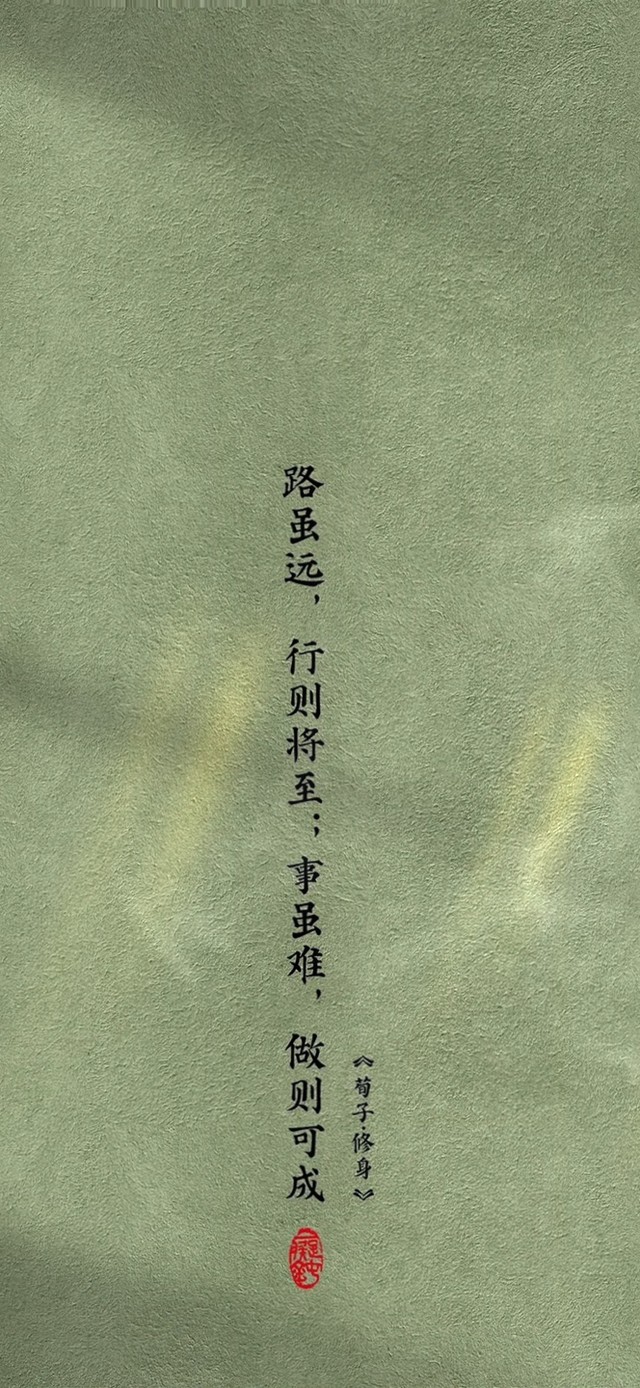 路虽远，行则将至；事虽难，做则可成
《荀子·修身》